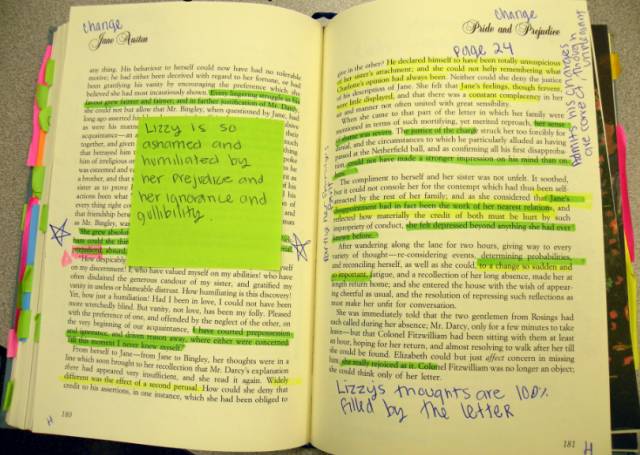 change
Jane Austen
any thing. His behaviour to herself could now have had no tolerable
motive; he had either been deceived with regard to her fortune, or had
been gratifying his vanity by encouraging the preference which she
believed she had most incautiously shown. Every lingering struggle in his
favour grew fainter and fainter; and in farther justification of Mr. Darcy,
she could not but allow that Mr. Bingley, when questioned by Jane, had
long ago asserted his
as were his manners
acquaintance—an
together, and given
that betrayed him
him of irreligious or
was esteemed and
a brother, and that
sister as to prove
actions been what
every thing right
that friendship between
as Mr. Bingley, was
She grew absolutely
prejudiced, absurd.
"How despicably
Lizzy is so
ashamed and
humiliated by
her prejudice and
her ignorance and
gullibility.
on my discernment! I, who have valued myself on my abilities! who have
often disdained the generous candour of my sister, and gratified my
vanity in useless or blameable distrust. How humiliating is this discovery!
Yet, how just a humiliation! Had I been in love, I could not have been
more wretchedly blind. But vanity, not love, has been my folly. Pleased
with the preference of one, and offended by the neglect of the other, on
the very beginning of our acquaintance, I have courted prepossession
and ignorance, and driven reason away, where either were concerned.
Till this moment I never knew myself."
From herself to Jane—from Jane to Bingley, her thoughts were in a
line which soon brought to her recollection that Mr. Darcy's explanation
there had appeared very insufficient, and she read it again. Widely
different was the effect of a second perusal. How could she deny that
credit to his assertions, in one instance, which she had been obliged to
180
H
change
Pride and Prejudice
page 24
give in the other? He declared himself to have been totally unsuspicious
of her sister's attachment; and she could not help remembering what
Charlotte's opinion had always been. Neither could she deny the justice
of his description of Jane. She felt that Jane's feelings, though fervent,
were little displayed, and that there was a constant complacency in her
air and manner not often united with great sensibility.
When she came to that part of the letter in which her family were
mentioned in terms of such mortifying, yet merited reproach, her sense
of shame was severe. The justice of the charge struck her too forcibly for
denial, and the circumstances to which he particularly alluded as having
passed at the Netherfield ball, and as confirming all his first disapprobation,
could not have made a stronger impression on his mind than on
hers.
The compliment to herself and her sister was not unfelt. It soothed,
but it could not console her for the contempt which had thus been self-
attracted by the rest of her family; and as she considered that Jane's
disappointment had in fact been the work of her nearest relations, and
reflected how materially the credit of both must be hurt by such
impropriety of conduct, she felt depressed beyond anything she had ever
known before.
After wandering along the lane for two hours, giving way to every
variety of thought—re-considering events, determining probabilities,
and reconciling herself, as well as she could, to a change so sudden and
so important, fatigue, and a recollection of her long absence, made her at
length return home; and she entered the house with the wish of appear-
ing cheerful as usual, and the resolution of repressing such reflections as
must make her unfit for conversation.
She was immediately told that the two gentlemen from Rosings had
each called during her absence; Mr. Darcy, only for a few minutes to take
leave—but that Colonel Fitzwilliam had been sitting with them at least
an hour, hoping for her return, and almost resolving to walk after her till
she could be found. Elizabeth could but just affect concern in missing
him; she really rejoiced at it. Colonel Fitzwilliam was no longer an object;
she could think only of her letter.
Lizzy's thoughts are 100%
filled by the letter
181
H